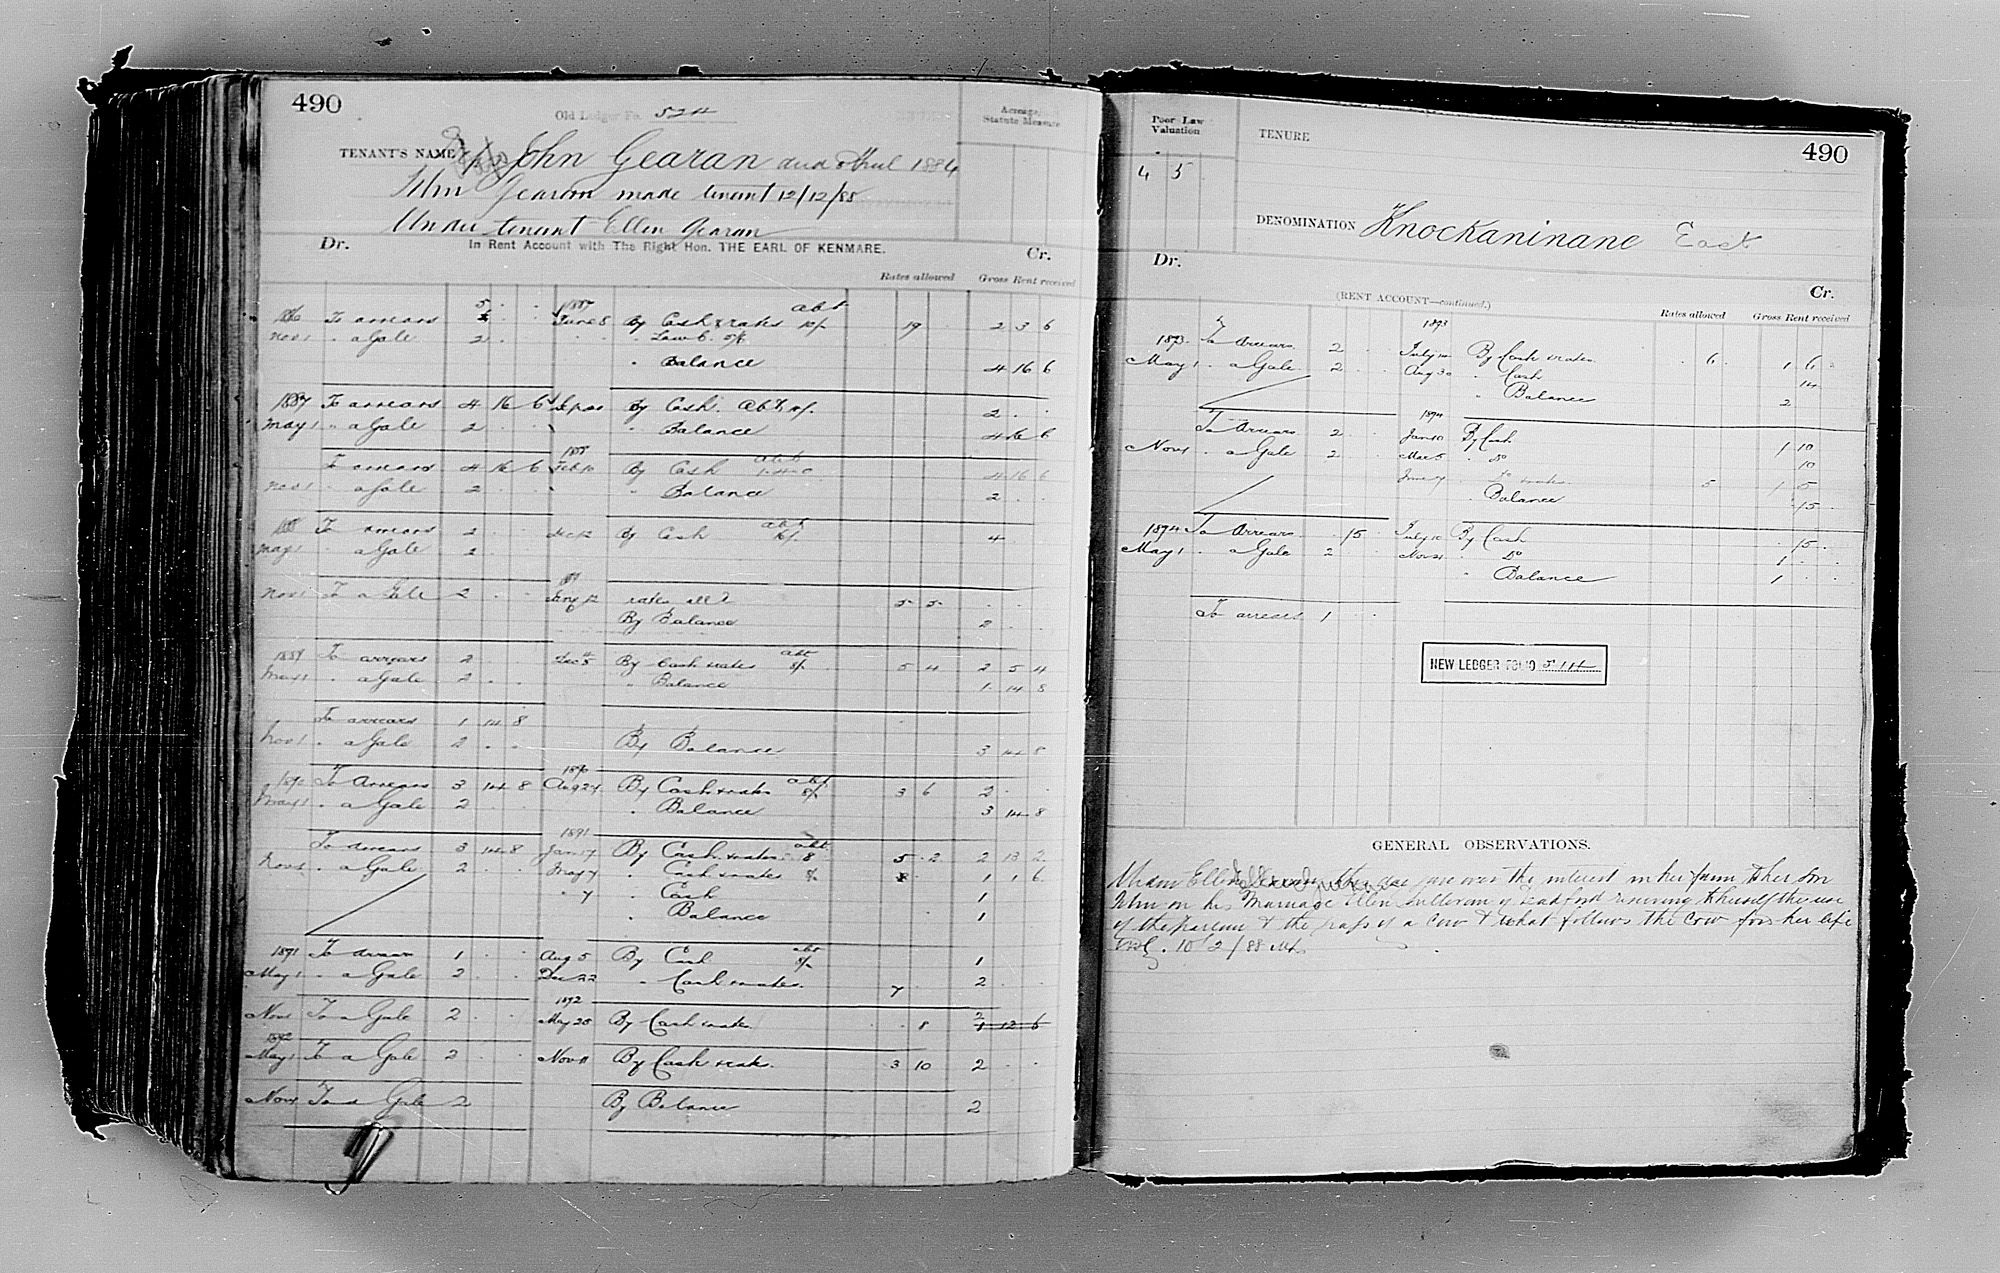 490
Old Ledger Fo. 524
Acreage, Statute Measure
TENANT'S NAME John Gearan died April 1884
John Gearan made tenant 12/12/85
Under tenant Ellen Gearan
Dr. In Rent Account with The Right Hon. THE EARL OF KENMARE. Cr.
Rates allowed Gross Rent received
1887 abt
1886 To arrears 5 . . June 8 By Cash & rates 10/- 19 . 2 3 6
Nov 1 " a Gale 2 . . " Law C. 5/6
" Balance 4 16 6
1887 To arrears 4 16 6 Sep 20 By Cash. Abt 4/. 2 . .
May 1 " a Gale 2 . . " Balance 4 16 6
1888 abt
To arrears 4 16 6 Feb 10 By Cash 4 16 6
Nov 1 " a Gale 2 . . " Balance 2 . .
1888 To arrears 2 . . Dec 12 By Cash abt 4 . .
May 1 " a Gale 2 . .
1889
Nov 1 To a Gale 2 . . Aug 12 rates all d 5 5 . .
By Balance 2 . .
1889 To arrears 2 . . Dec 5 By Cash & rates abt 5/- 5 4 2 5 4
May 1 " a Gale 2 . . " Balance 1 14 8
To arrears 1 14 8
Nov 1 " a Gale 2 . . By Balance 3 14 8
1890
1890 To Arrears 3 14 8 Aug 27 By Cash & rates abt 5/- 3 6 2 . .
May 1 " a Gale 2 . . " Balance 3 14 8
1891
To Arrears 3 14 8 Jan 17 By Cash & rates abt 8 5 2 2 13 2
Nov 1 " a Gale 2 . . May 7 " Cash & rates 8 1 1 6
" 7 " Cash 1
" Balance 1
1891 To Arrears 1 . . Aug 5 By Cash abt 5/- 1
May 1 " a Gale 2 . . Dec 22 " Cash & rates. 7 2 . .
1892
Nov 1 To a Gale 2 . . May 28 By Cash & rates . 8 2 1 12 6
1892
May 1 To a Gale 2 . . Nov 11 By Cash & rates. 3 10 2 . .
Nov 1 To a Gale 2 By Balance 2
Poor Law Valuation
4 5
TENURE
490
DENOMINATION Knockaninane East
Dr. Cr.
(RENT ACCOUNT—continued.)
Rates allowed Gross Rent received
1893
1893 To Arrears 2 . . July 10 By Cash & rates . 6 . 1 6 .
May 1 " a Gale 2 . . Aug 30 " Cash 14
" Balance 2
1894
To Arrears 2 . . Jan 10 By Cash 1 10
Nov 1 " a Gale 2 . . Mar 5 " Do 10
June 7 " Do & rates. 5 1 5
" Balance 15
1894 To Arrears . 15 . July 10 By Cash . 15 .
May 1 " a Gale 2 . . Nov 21 " Do 1 . .
" Balance 1 . .
To arrears 1 . .
NEW LEDGER FOLIO 514
GENERAL OBSERVATIONS.
Widow Ellen over the interest in her farm to her son
John on his Marriage Ellen Sullivan of Leadford reserving to herself the use
of the & the grass of a cow & what follows the cow for her life
10/2/88